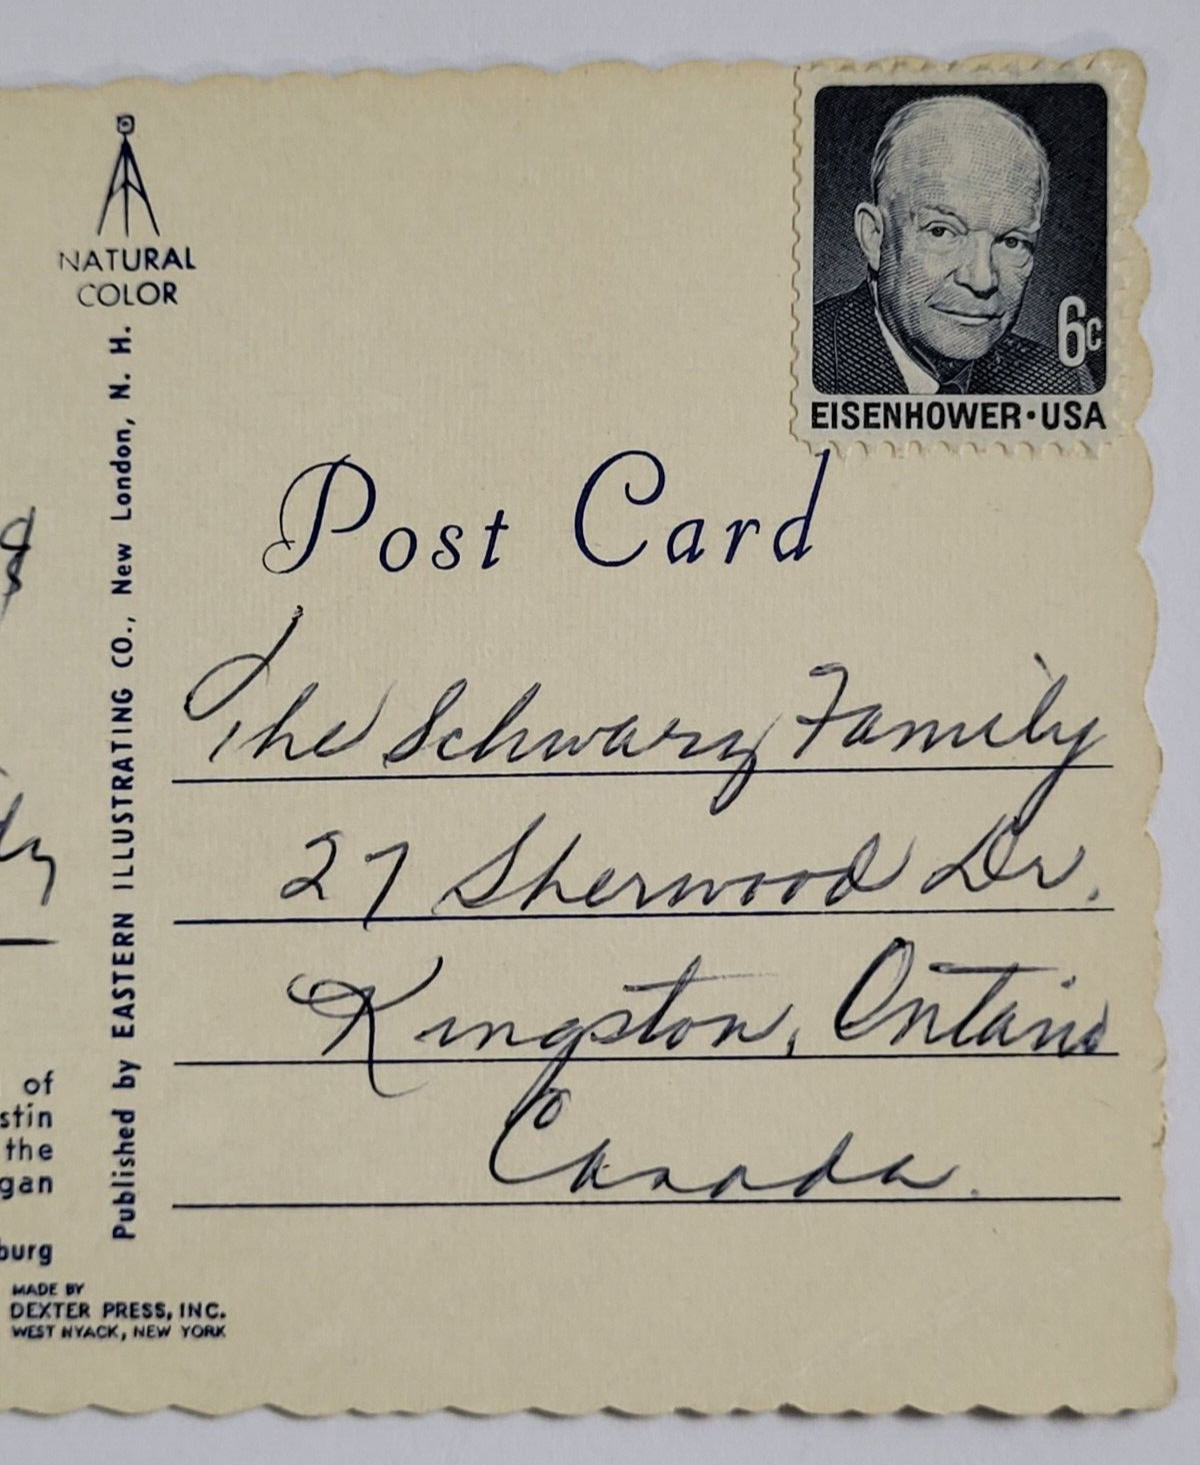 NATURAL
COLOR
6c
EISENHOWER·USA
Post Card
The Schwarz Family
27 Sherwood Dr.
Kingston, Ontario
Canada.
Published by EASTERN ILLUSTRATING CO., New London, N. H.
of
stin
the
gan
burg
MADE BY
DEXTER PRESS, INC.
WEST NYACK, NEW YORK